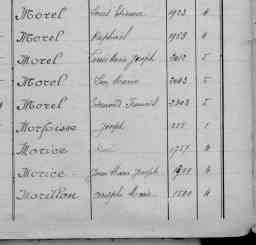 Morel Louis Etienne 1923 4
Morel Raphael 1959 4
Morel Louis Marie Joseph 2012 5
Morel 2043 5
Morel Edmond Francis 2303 5
Morfoisse Joseph 225 1
Morice 1757 4
Morice Jean Marie Joseph 4
Morillon Joseph Marie 1580 4